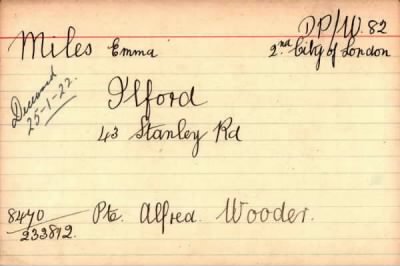 DP/W. 82
Miles Emma
2nd City of London
Deceased
25-1-22.
Ilford
43 Stanley Rd
8470
233812.
Pte. Alfred. Wooder.